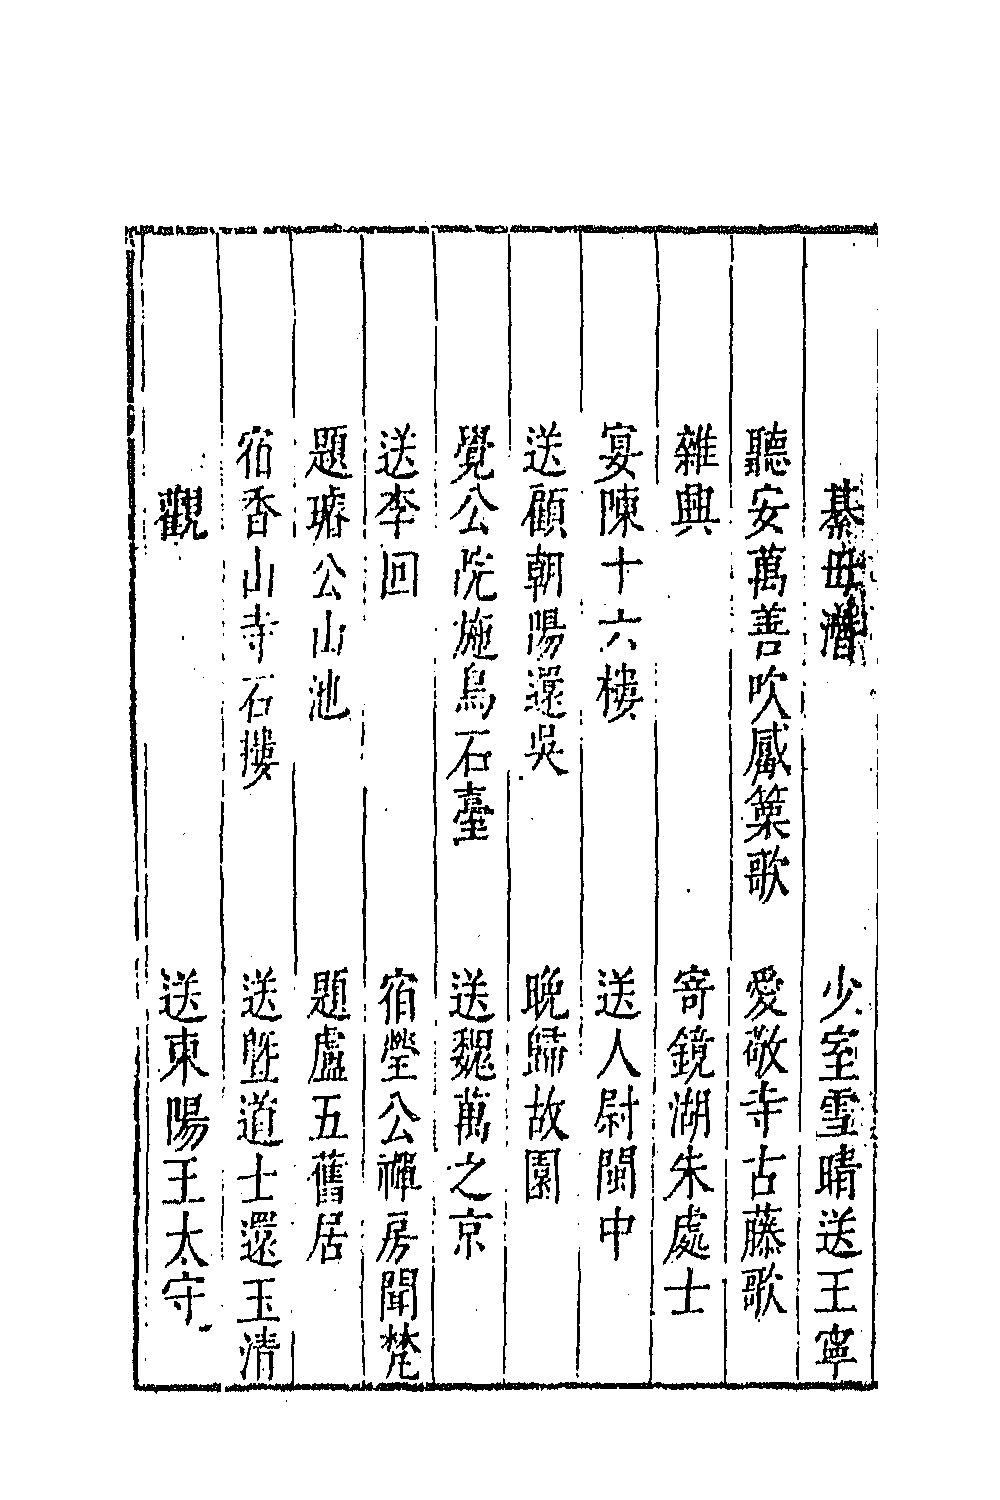 綦毋潛　少室雪晴送王寧
聽安萬善吹觱篥歌　愛敬寺古藤歌
雜興　寄鏡湖朱處士
宴陳十六樓　送人尉閩中
送顧朝陽還吳　晚歸故園
覺公院施鳥石臺　送魏萬之京
送李回　宿瑩公禪房聞梵
題璿公山池　題盧五舊居
宿香山寺石樓　送暨道士還玉清
觀　送東陽王太守